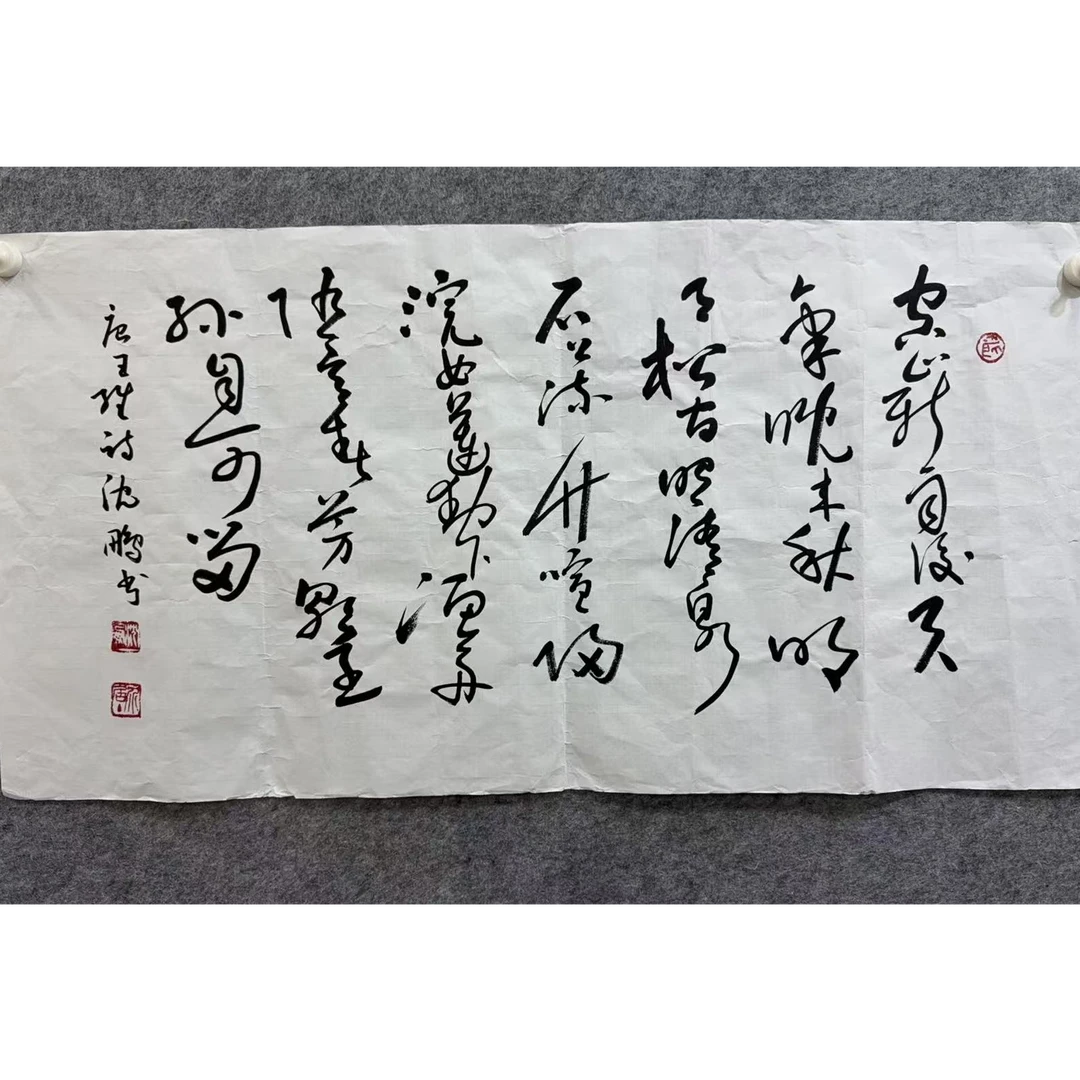 空山新雨後天
氣晚来秋明
月松間照清泉
石上流竹喧歸
浣女蓮動下漁舟
隨意春芳歇王
孫自可留
唐王維詩沈鵬书